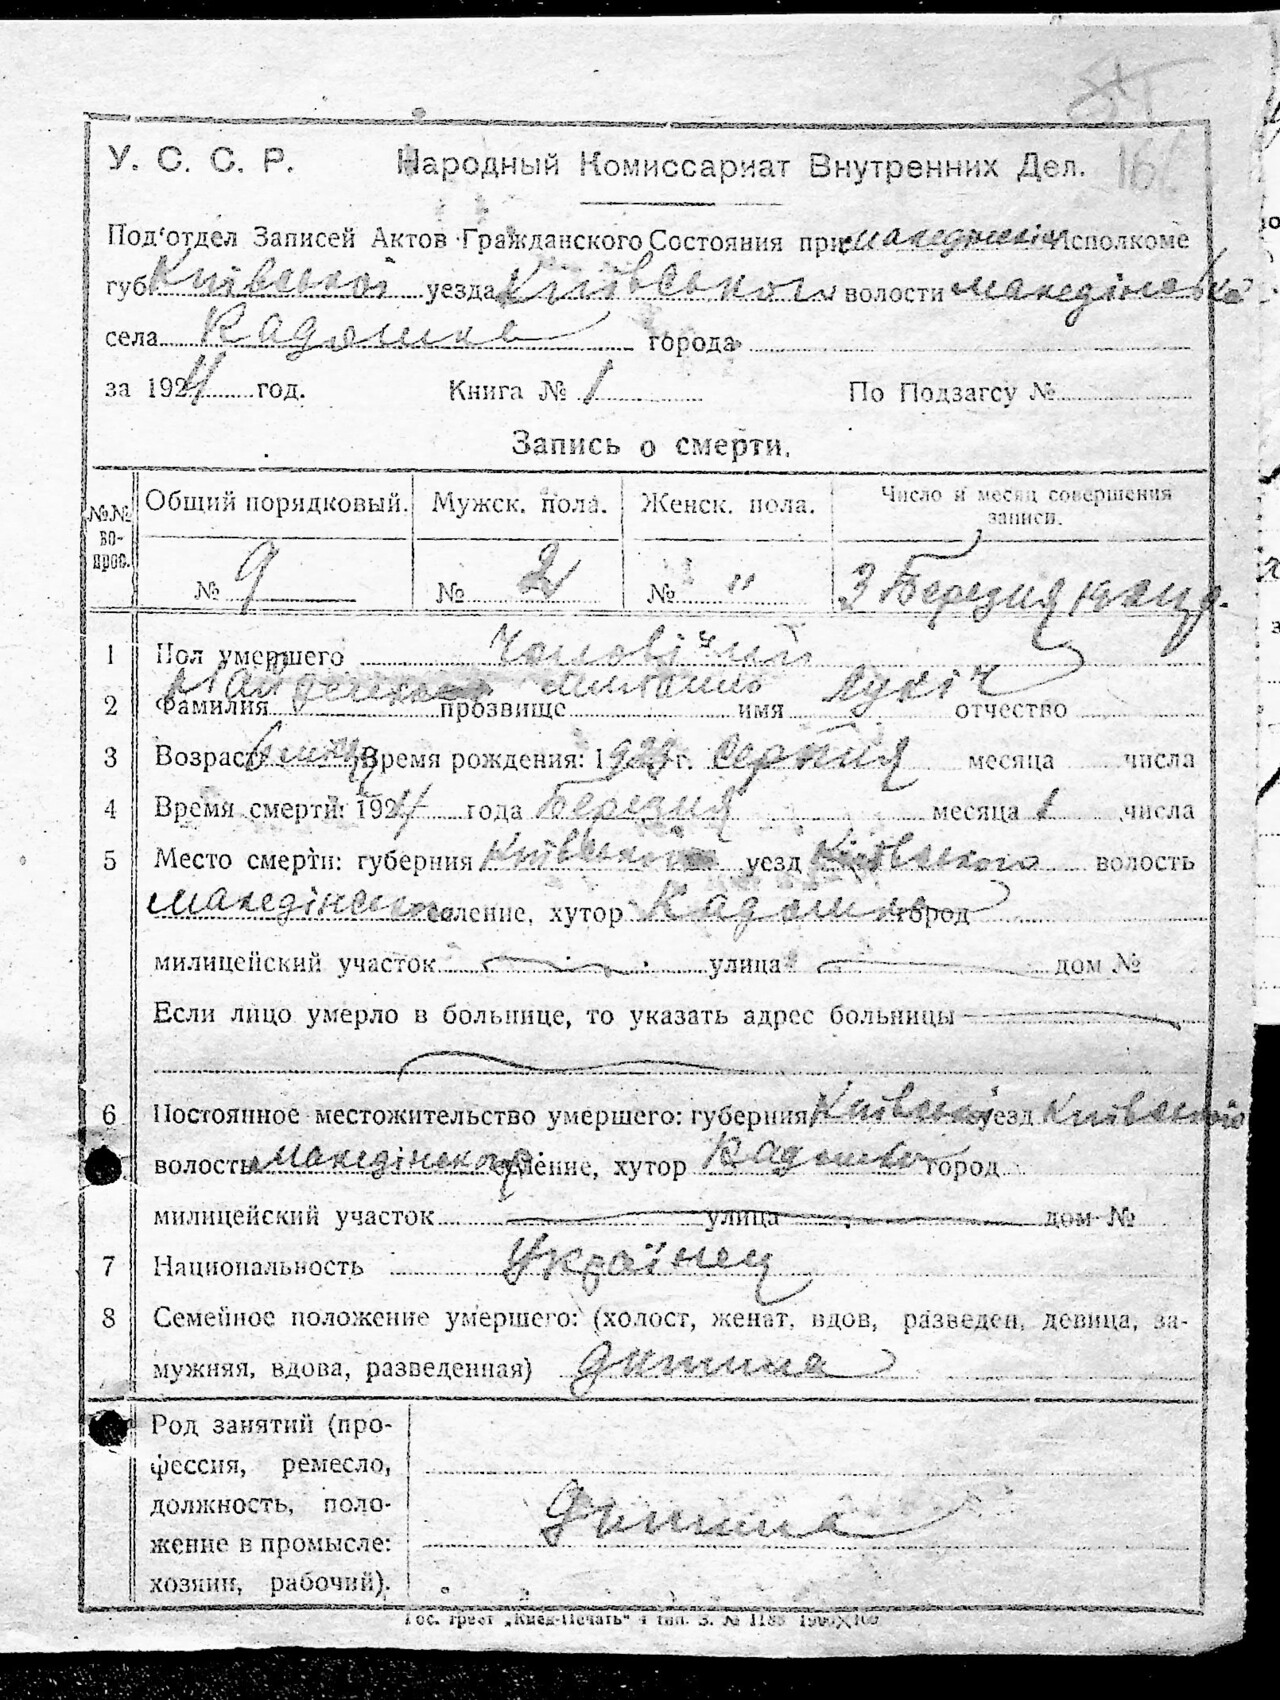 У. С. С. Р. Народный Комиссариат Внутренних Дел.
Под'отдел Записей Актов Гражданского Состояния при Исполкоме
губ. Київської уезда Київського волости Македонська
села Кадомка города
за 1924 год. Книга № 1 По Подзагсу №
Запись о смерти.
№№ вопрос. Общий порядковый. Мужск. пола. Женск. пола. Число и месяц совершения записи.
№ 9 № 2 № " 3 Березня 1924 р.
1 Пол умершего Чоловічий
2 Фамилия прозвище имя отчество
3 Возраст Время рождения: 1923 г. Серпня месяца числа
4 Время смерти: 1924 года Березня месяца 1 числа
5 Место смерти: губерния Київської уезд Київського волость
селение, хутор Кадомка город
милицейский участок улица дом №
Если лицо умерло в больнице, то указать адрес больницы
6 Постоянное местожительство умершего: губерния Київської уезд Київського
волость селение, хутор Кадомка город
милицейский участок улица дом №
7 Национальность Українец
8 Семейное положение умершего: (холост, женат, вдов, разведен, девица, за-
мужняя, вдова, разведенная) дитина
Род занятий (про-
фессия, ремесло,
должность, поло- Дитина
жение в промысле:
хозяин, рабочий).
Гос. трест „Киев-Печать" 4 тип. З. № 1185 1900×100